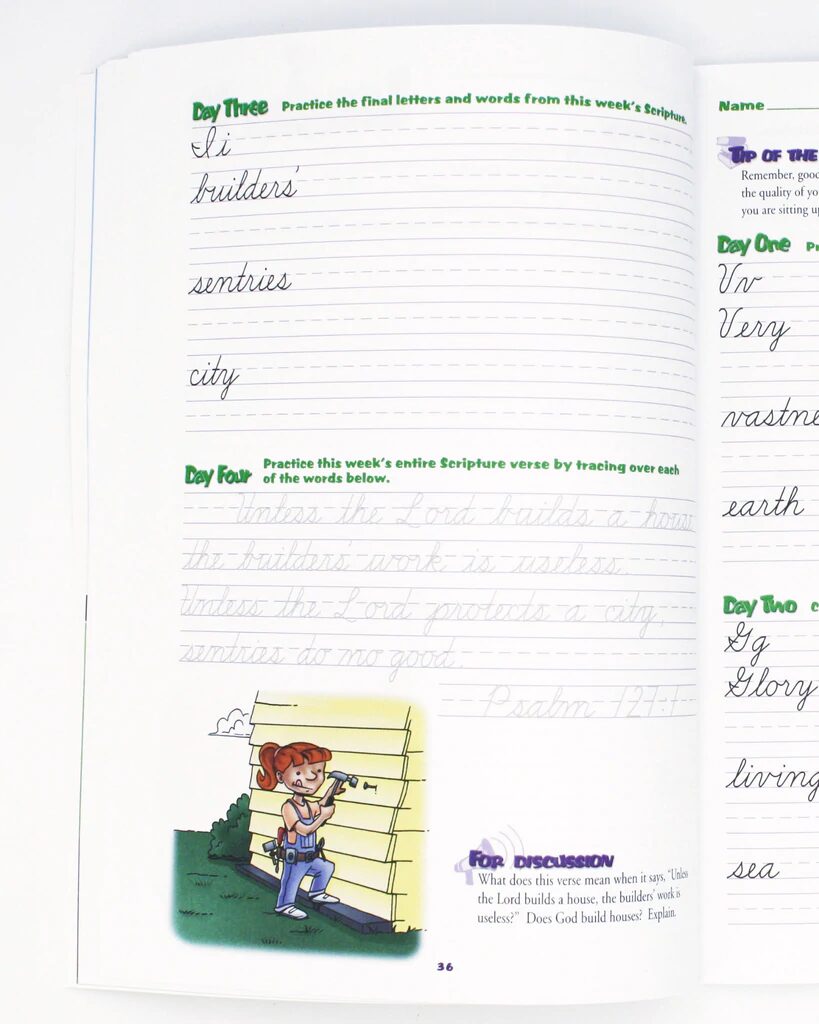 Day Three Practice the final letters and words from this week's Scripture.
Ii
builders'
sentries
city
Day Four Practice this week's entire Scripture verse by tracing over each
of the words below.
Unless the Lord builds a house
the builders' work is useless.
Unless the Lord protects a city,
sentries do no good.
Psalm 127:1
For Discussion
What does this verse mean when it says, "Unless
the Lord builds a house, the builders' work is
useless?" Does God build houses? Explain.
36
Name
Tip of the
Remember, good
the quality of yo
you are sitting up
Day One
Vv
Very
vastne
earth
Day Two
Gg
Glory
living
sea